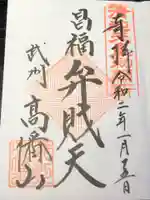 奉拝 令和二年一月五日
昌福 弁財天
武州 高幡山